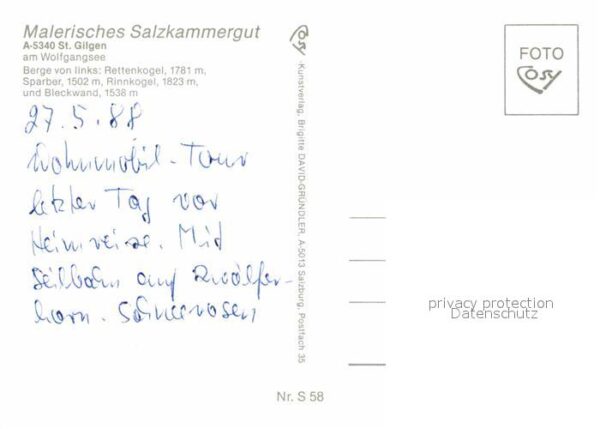 Malerisches Salzkammergut
A-5340 St. Gilgen
am Wolfgangsee
Berge von links: Rettenkogel, 1781 m,
Sparber, 1502 m, Rinnkogel, 1823 m,
und Bleckwand, 1538 m
27.5.88
Wohnmobil-Tour
letzter Tag vor
Heimreise. Mit
Seilbahn auf Zwölfer-
horn. Schneerosen
Cosy
Kunstverlag, Brigitte DAVID-GRÜNDLER, A-5013 Salzburg, Postfach 35
FOTO
Cosy
privacy protection
Datenschutz
Nr. S 58